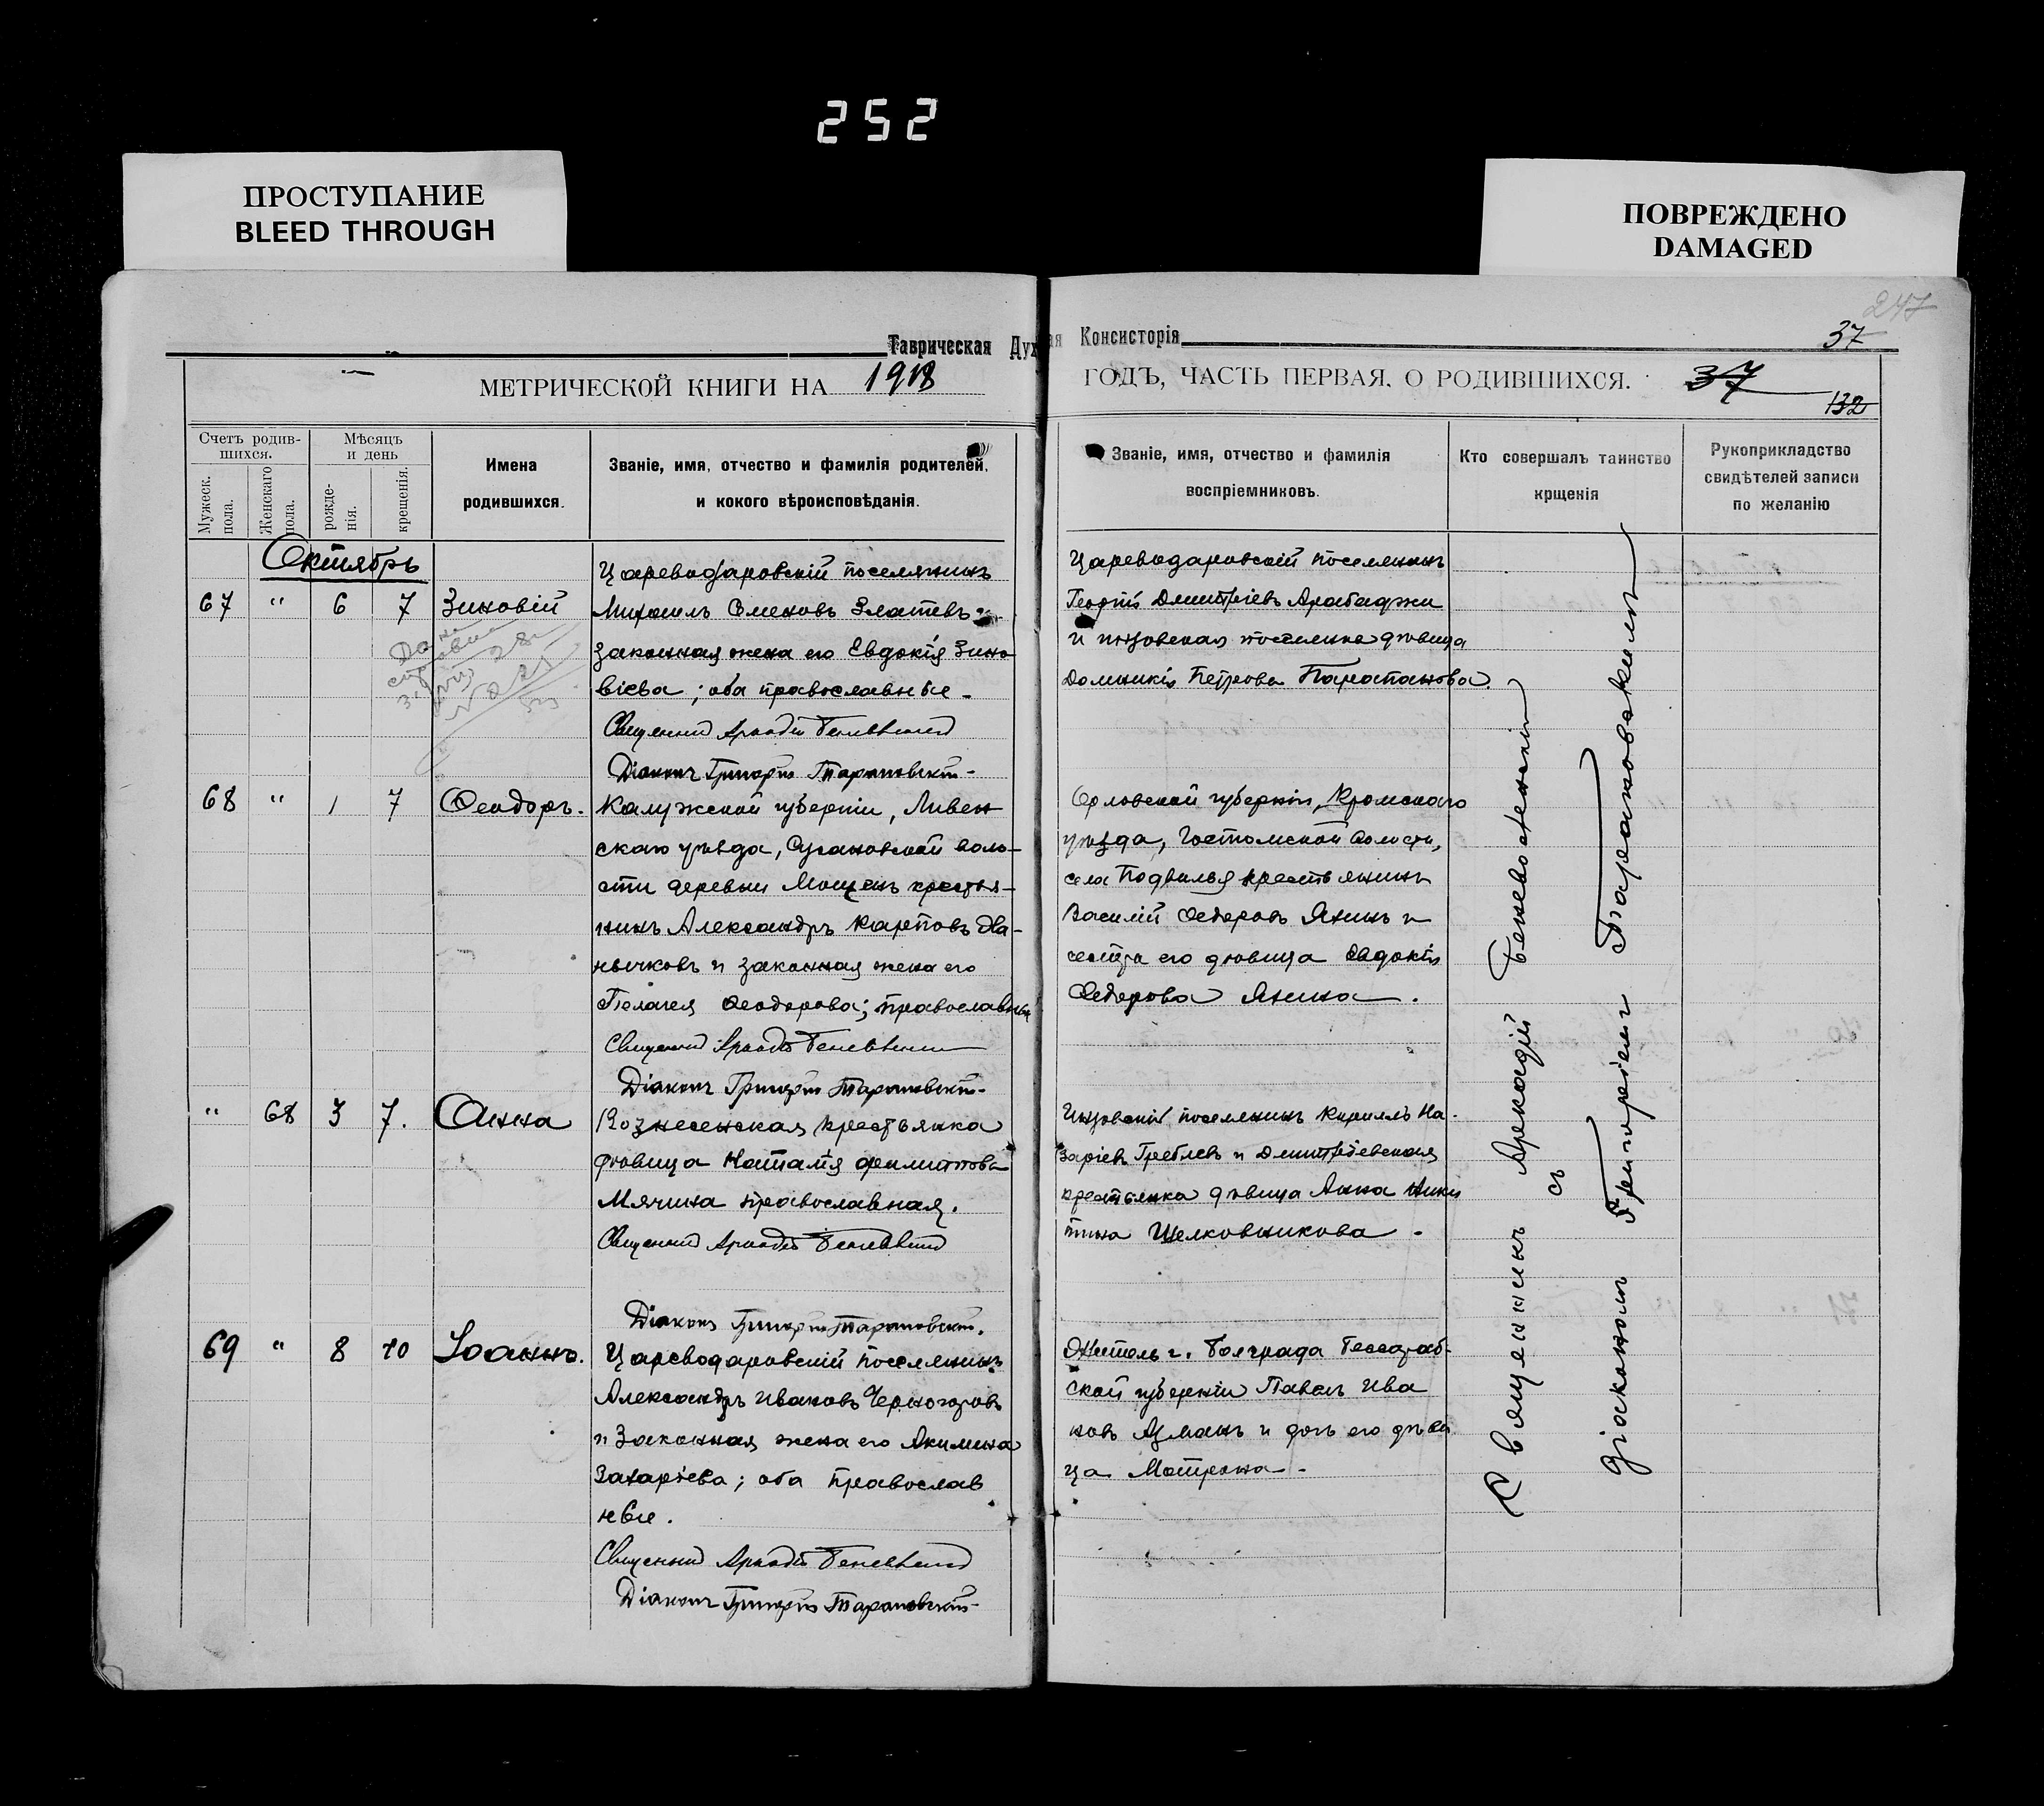 252
ПРОСТУПАНИЕ
BLEED THROUGH
ПОВРЕЖДЕНО
DAMAGED
247
37
Таврическая Духовная Консисторія
МЕТРИЧЕСКОЙ КНИГИ НА 1918
ГОДЪ, ЧАСТЬ ПЕРВАЯ, О РОДИВШИХСЯ.
37
132
Счетъ родив-
шихся.
Мужеск.
пола.
Женскаго
пола.
Мѣсяцъ
и день
рожде-
нія.
крещенія.
Имена
родившихся.
Званіе, имя, отчество и фамилія родителей,
и кокого вѣроисповѣданія.
Званіе, имя, отчество и фамилія
воспріемниковъ.
Кто совершалъ таинство
крщенія
Рукоприкладство
свидѣтелей записи
по желанію
Октябрь
67 " 6 7 Зиновій
Цареводаровскій поселянинъ
Михаилъ Семеновъ Златевъ и
законная жена его Евдокія Зино
віева; оба православные.
Священникъ Аркадій
Діаконъ Григорій Тарановскій
Цареводаровскій поселянинъ
Георгій Димитріевъ Арабаджи
и инзовская поселянка дѣвица
Домникія Петрова
68 " 1 7 Ѳеодоръ.
Калужской губерніи,
скаго уѣзда, воло-
сти деревни Мощенъ крестья-
нинъ Александръ Карповъ Да-
нычковъ и законная жена его
Пелагея Ѳеодорова; православные
Священникъ Аркадій
Діаконъ Григорій Тарановскій
Орловской губерніи, Кромскаго
уѣзда, Гостомской волости,
села крестьянинъ
Василій Ѳедоровъ Янинъ и
сестра его дѣвица Евдокія
Ѳедорова Янина.
" 68 3 7. Анна
Вознесенская крестьянка
дѣвица Наталія Филиппова
Мячина православная.
Священникъ Аркадій
Діаконъ Григорій Тарановскій.
Инзовскій поселянинъ Кириллъ На-
заріевъ Греблевъ и Димитріевская
крестьянка дѣвица Анна Ники
тина Щелковникова.
69 " 8 10 Іоаннъ.
Цареводаровскій поселянинъ
Александръ Ивановъ Черногоровъ
и законная жена его Акилина
Захаріева; оба православ
ные.
Священникъ Аркадій
Діаконъ Григорій Тарановскій
Житель г. Болграда Бессараб-
ской губерніи Павелъ Ива
новъ и дочь его дѣви
ца Матрона.
Священникъ Аркадій
съ
діакономъ Григоріемъ Тарановскимъ